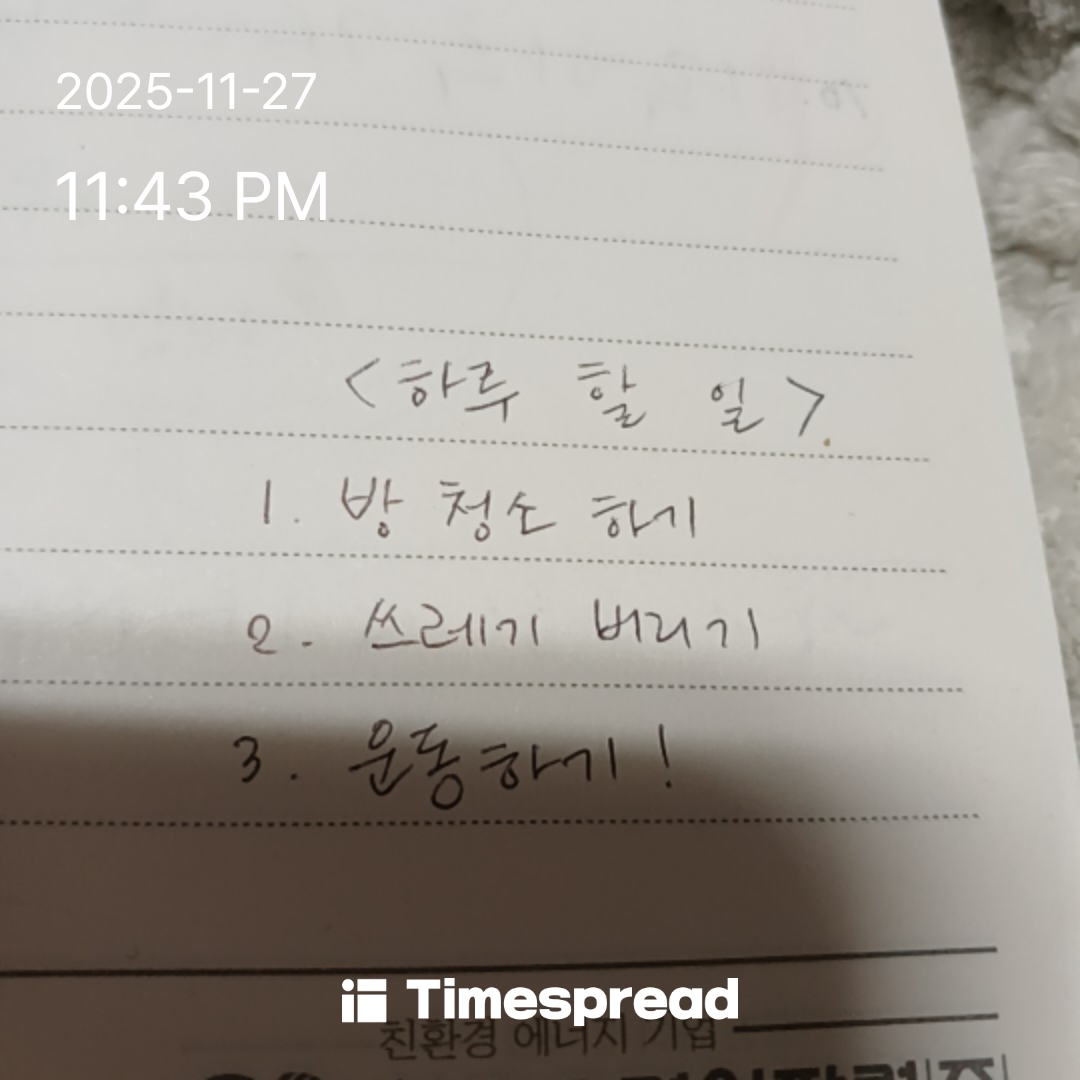 2025-11-27
11:43 PM
<하루 할 일>
1. 방 청소 하기
2. 쓰레기 버리기
3. 운동하기!
Timespread
친환경 에너지 기업